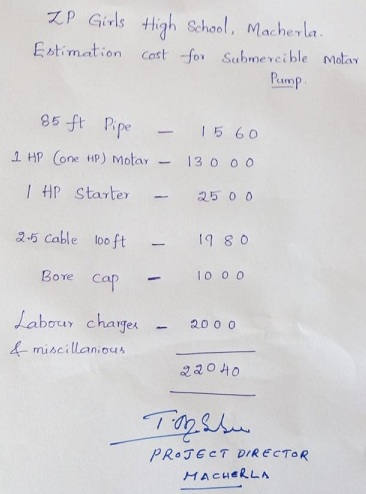 ZP Girls High School, Macherla.
Estimation cost for Submercible Motar
Pump.
85 ft Pipe — 1560
1 HP (one HP) Motar — 13000
1 HP Starter — 2500
2.5 Cable 100ft — 1980
Bore cap — 1000
Labour charges — 2000
& miscillanious
22040
PROJECT DIRECTOR
MACHERLA